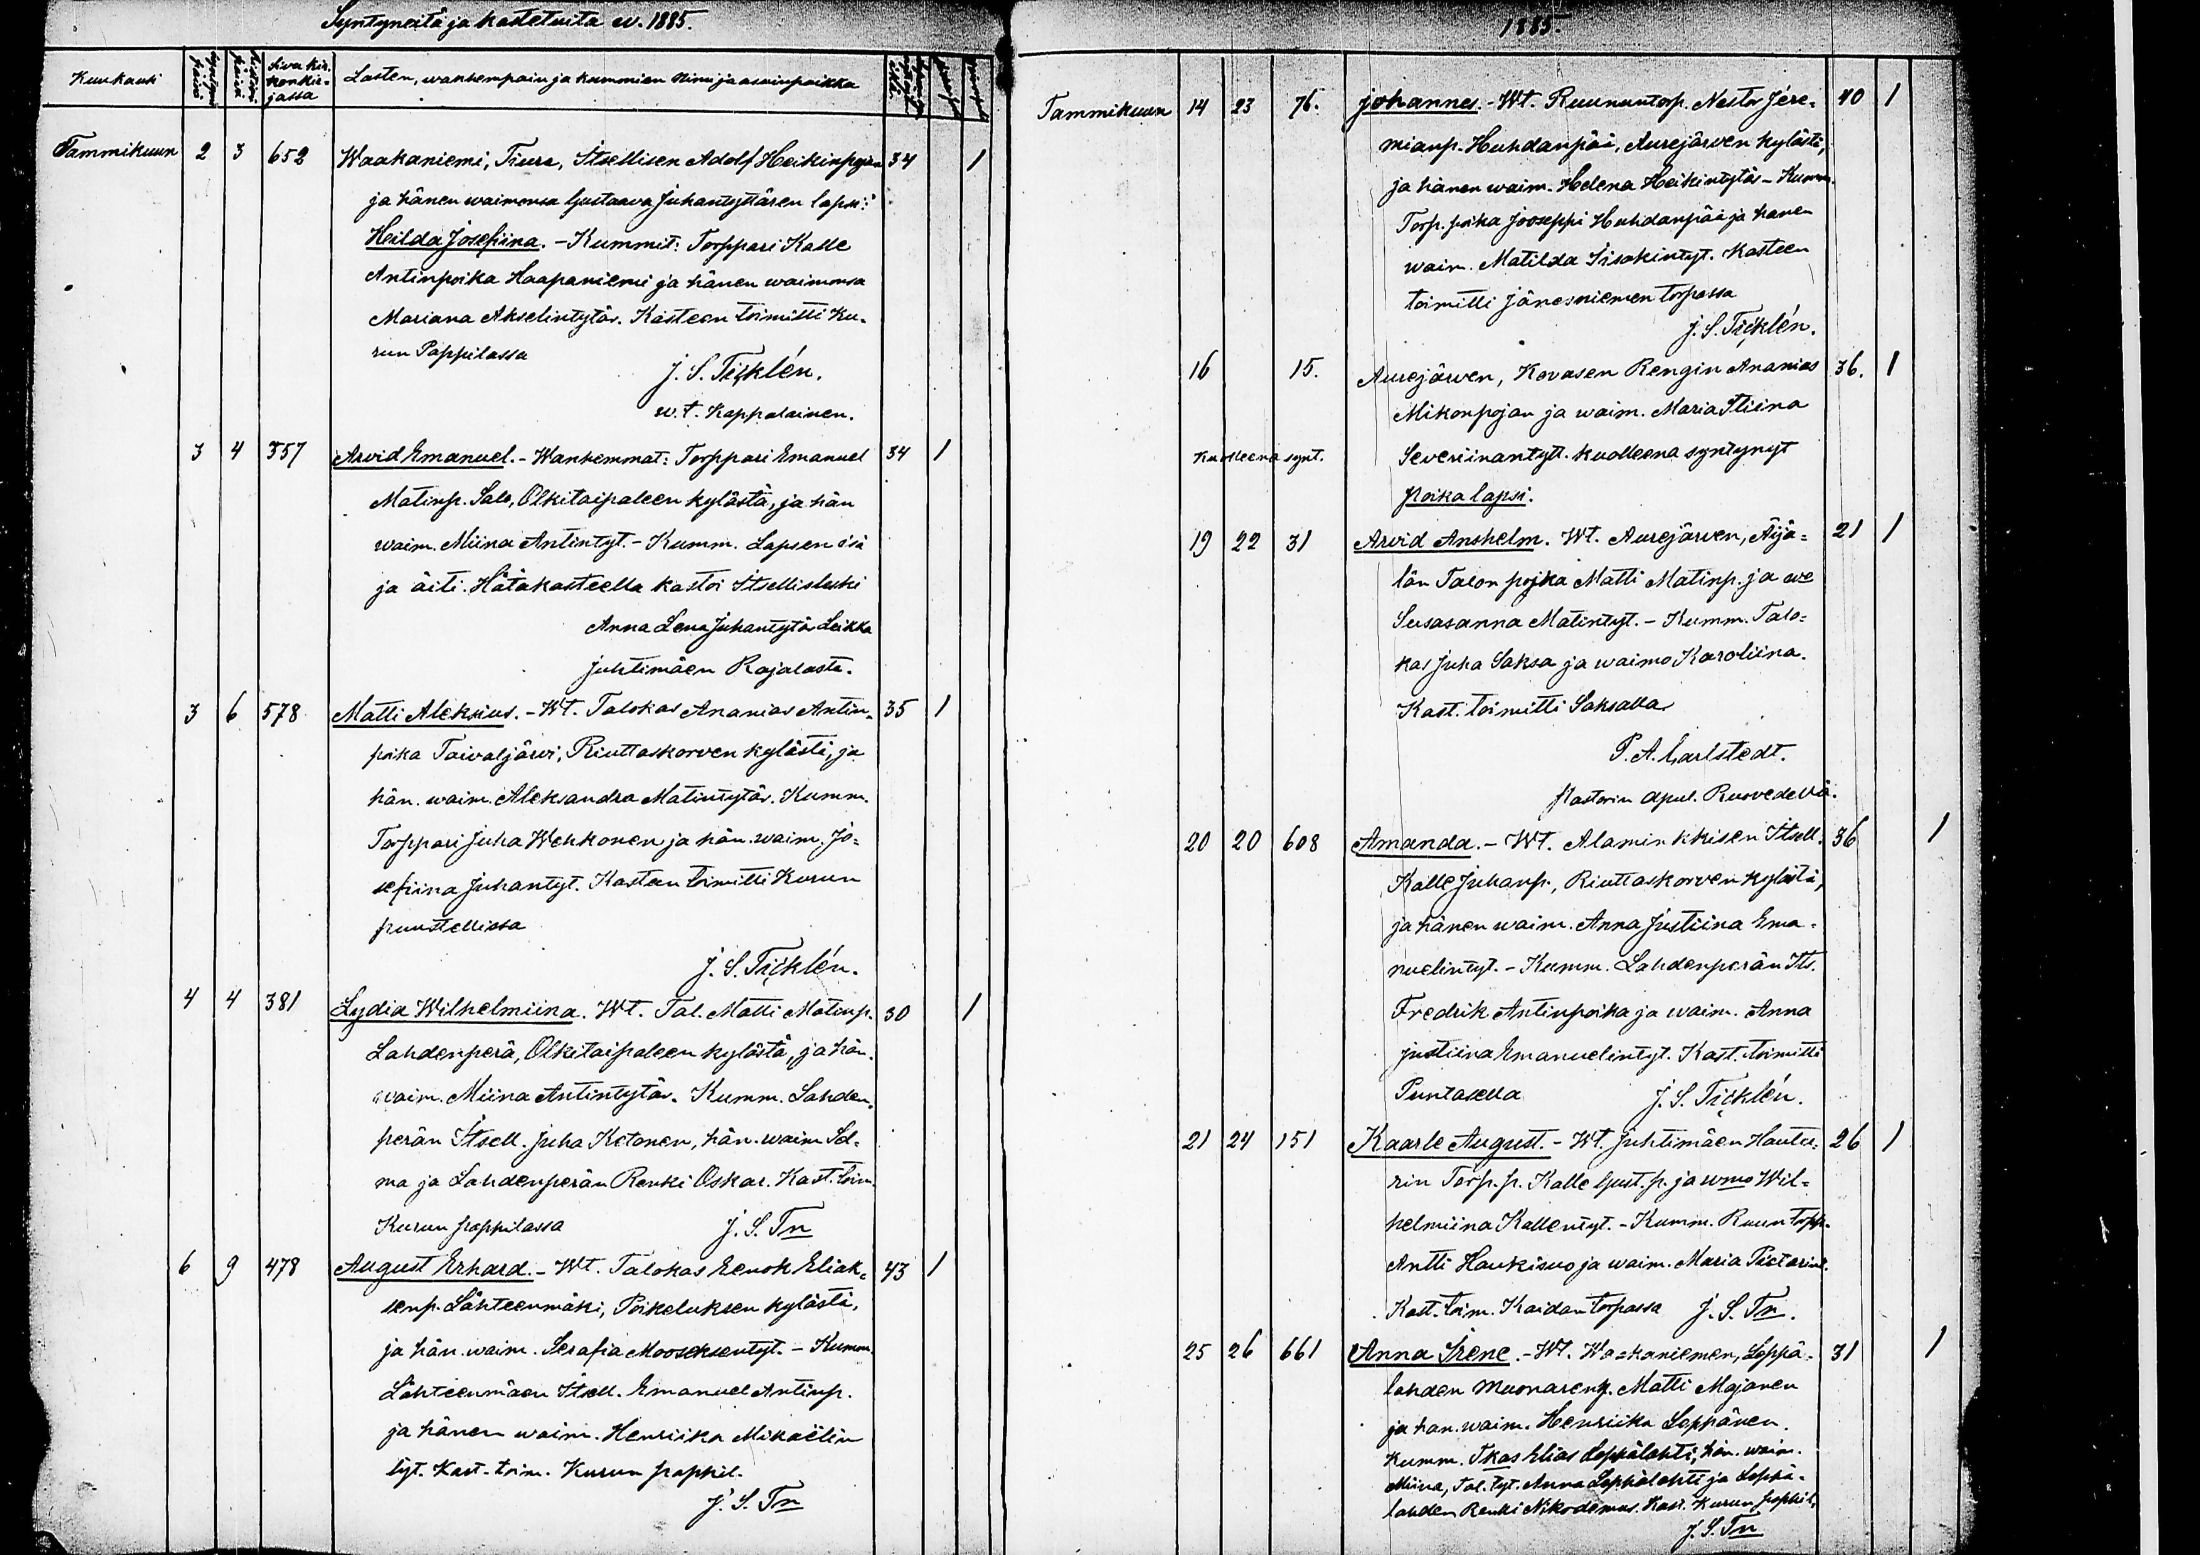 Syntyneitä ja kastetuita w. 1885.
Kuukausi
Sivu kir. kon kir= jassa
Lasten, wanhempain ja kummien nimi ja asuinpaikka
Tammikuun 2 3 652 Waakaniemi, Tiura, Itsellisen Adolf Heikinpojan 34 1
ja hänen waimonsa Gustaava Juhantyttären lapsi:
Hilda Josefiina. - Kummit: Torppari Kalle
Antinpoika Haapaniemi ja hänen waimonsa
Mariana Akselintytär. Kasteen toimitti Ku=
run Pappilassa
J. S. Ticklén.
w. t. Kappalainen.
3 4 357 Arvid Emanuel. - Wanhemmat: Torppari Emanuel 34 1
Matinp. Salo, Olkitaipaleen kylästä, ja hän
waim. Miina Antintyt. - Kumm. Lapsen isä
ja äiti. Hätäkasteella kastoi Itsellisleski
Anna Lena Juhantytär Leikka
Juhtimäen Rajalasta.
3 6 578 Matti Aleksius. - Wt. Talokas Ananias Antin= 35 1
poika Taivaljärvi, Riuttaskorven kylästä, ja
hän. waim. Aleksandra Matintytär. Kumm.
Torppari Juha Wehkonen ja hän. waim. Jo=
sefiina Juhantyt. Kasteen toimitti Kurun
puustellissa
J. S. Ticklén.
4 4 381 Lydia Wilhelmiina. Wt. Tal. Matti Matinp. 30 1
Lahdenperä, Olkitaipaleen kylästä, ja hän.
waim. Miina Antintytär. Kumm. Lahden=
perän Itsell. Juha Ketonen, hän. waim Sel=
ma ja Lahdenperän Renki Oskar. Kast. toim.
Kurun pappilassa J. S. Tn
6 9 478 August Erhard. - Wt. Talokas Eenok Eliak= 43 1
senp. Lähteenmäki, Poikeluksen kylästä,
ja hän. waim. Serafia Mooseksentyt. - Kumm.
Lähteenmäen Itsell. Emanuel Antinp.
ja hänen waim. Henriika Mikaelin
tyt. Kast. toim. Kurun pappil.
J. S. Tn
1885.
Tammikuun 14 23 76. Johannes. - Wt. Ruununtorp. Nestor Jere= 40 1
mianp. Huhdanpää, Aurejärwen kylästä,
ja hänen waim. Helena Heikintytär - Kumm.
Torp. poika Jooseppi Huhdanpää ja hänen
waim. Matilda Iisakintyt. Kasteen
toimitti Jänesniemen torpassa
J. S. Ticklén.
16 15. Aurejärwen, Kovasen Rengin Ananias 36. 1
Mikonpojan ja waim. Maria Stiina
Kuolleena synt. Severiinantytt. kuolleena syntynyt
poika lapsi.
19 22 31 Arvid Anshelm. Wt. Aurejärwen, Äijä= 21 1
län Talon pojka Matti Matinp. ja we
Susasanna Matintyt. - Kumm. Talo=
kas Juha Saksa ja waimo Karoliina.
Kast. toimitti Saksalla
P. A. Carlstedt.
Pastorin apul. Ruovedellä.
20 20 608 Amanda. - Wt. Alaminkkisen Itsell. 36 1
Kalle Juhanp., Riuttaskorven kylästä,
ja hänen waim. Anna Justiina Ema=
nuelintyt. - Kumm. Lahdenperän Its.
Fredrik Antinpoika ja waim. Anna
Justiina Emanuelintyt. Kast. toimitti
Puntasella J. S. Ticklén.
21 24 151 Kaarle August. - Wt. Juhtimäen Hautu= 26 1
rin Torp. p. Kalle Gust. p. ja wmo Wil=
helmiina Kallentyt. - Kumm. Ruun torpp.
Antti Haukisuo ja waim. Maria
Kast. toim. Kaidan torpassa J. S. Tn.
25 26 661 Anna Irene. - Wt. Waakaniemen, Leppä= 31 1
lahden Muonarenk. Matti Majanen
ja hän. waim. Henriika Leppänen.
Kumm. Tkas Elias Leppälahti, hän. waim.
Miina, Tal. tyt. Anna Leppälahti ja Leppä=
lahden Renki Nikodemus. Kast. Kurun pappil.
J. S. Tn